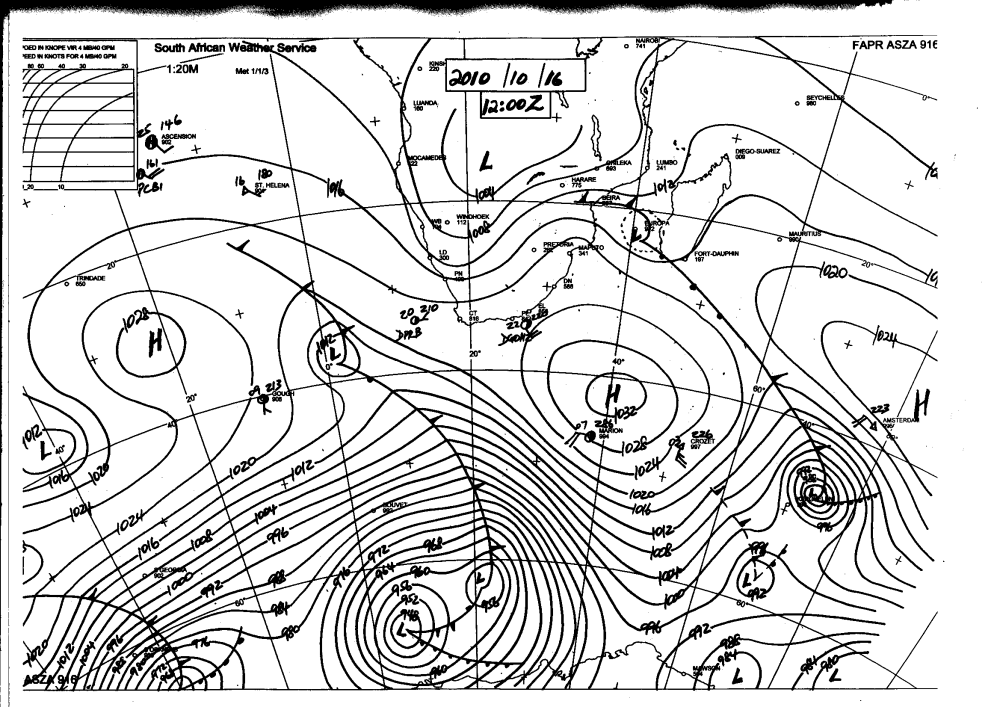 South African Weather Service
1:20M
Met 1/1/3
FAPR ASZA 916
2010/10/16
12:00Z
EED IN KNOTS FOR 4 MB/40 GPM
80 60 40 30 20
20 10
NAIROBI
741
220
LUANDA
160
SEYCHELLES
980
25 146
ASCENSION
902
161
PCB1
16 180
ST. HELENA
1016
MOCAMEDES
L
1004
CHILEKA
693
LUMBO
241
DIEGO-SUAREZ
009
HARARE
775
1012
BEIRA
EUROPA
L
WINDHOEK
112
1008
PRETORIA
MAPUTO
341
MAURITIUS
990
FORT-DAUPHIN
197
LD
300
DN
588
TRINDADE
650
20°
20°
0°
1020
1024
1028
H
20 210
CT
816
22
20°
1012
L
0°
40°
60°
H
1032
09 213
GOUGH
906
20°
40°
07
MARION
994
1028
226
CROZET
997
1024
1020
1016
1012
1008
1004
1000
996
992
988
984
223
AMSTERDAM
H
40°
1012
L
40°
1016
1020
1024
1024
1020
1012
1016
1008
1004
996
1000
992
988
984
980
60°
BOUVET
992
S GEORGIA
902
976
972
964
968
960
956
952
948
L
L
956
960
992
L
996
996
L
992
60°
MAWSON
L
984
980
L
1020
1012
1004
996
988
972
976
ASZA 916